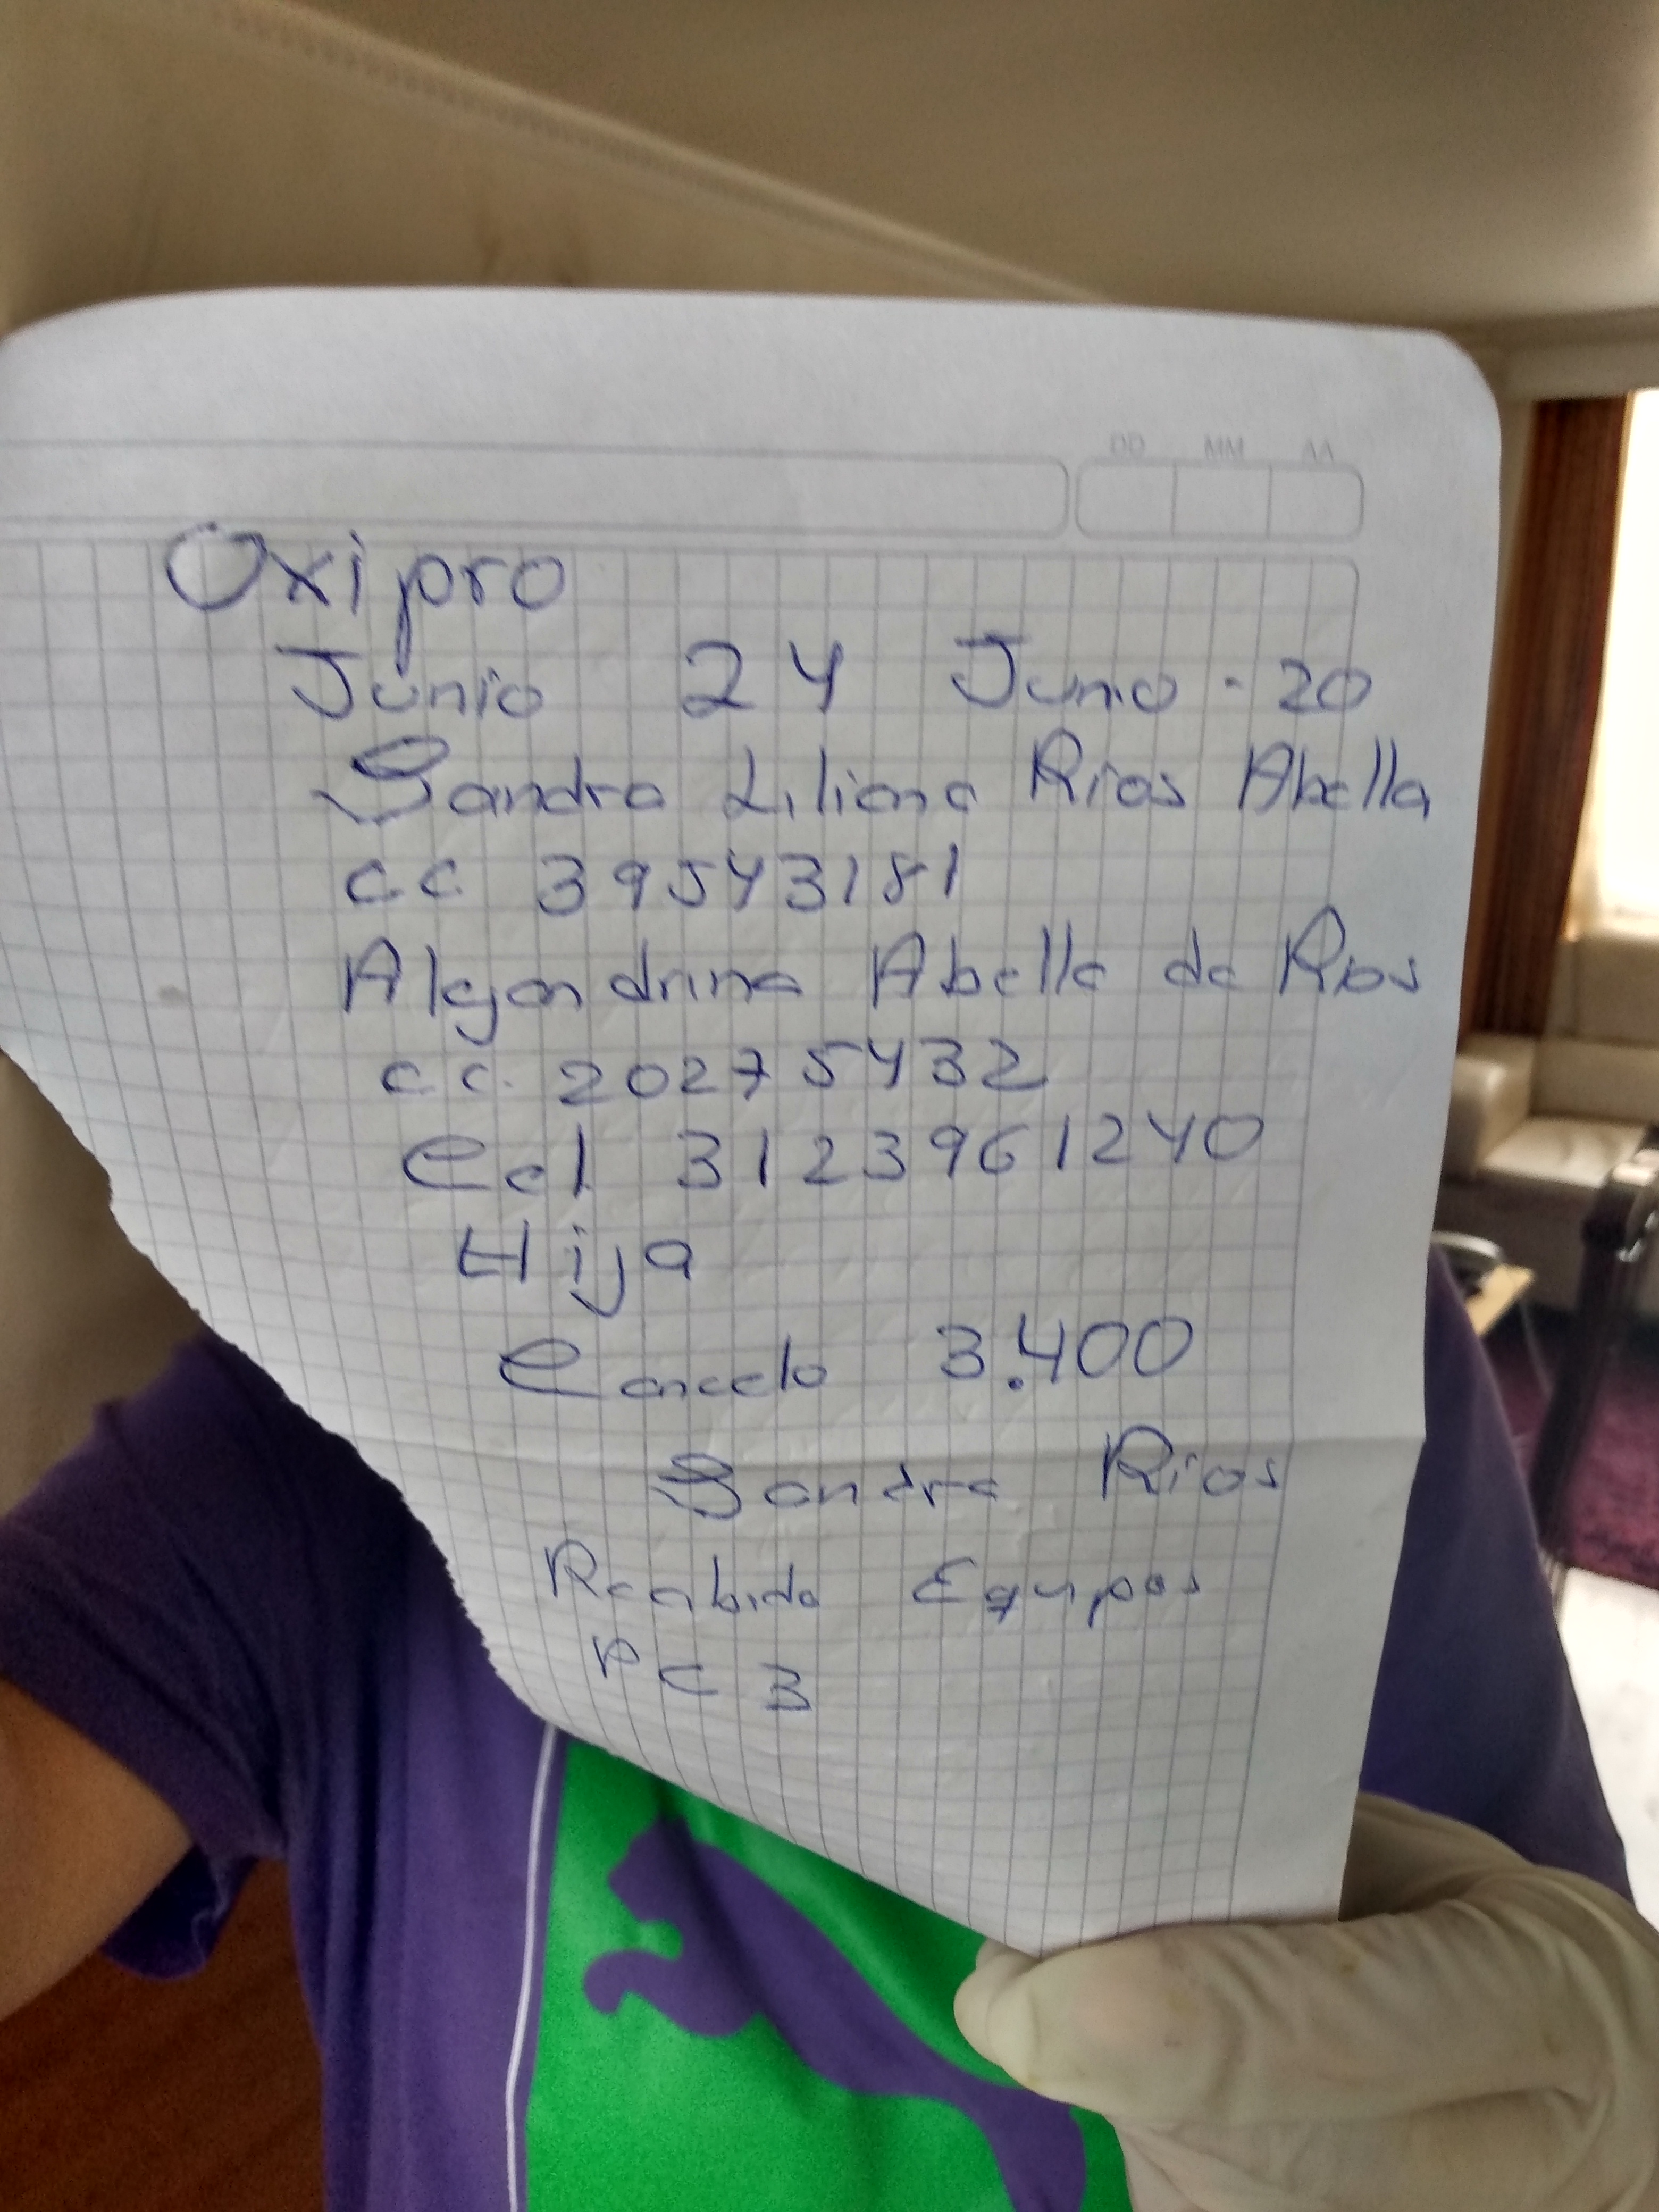 DD MM AA
Oxipro
Junio 24 Junio - 20
Sandra Liliana Rios Abella
c.c. 39543181
Alejandrina Abella de Rios
c.c. 20275432
Cel 3123961240
Hija
Cancelo 3.400
Sandra Rios
Recibido Equipos
PC 3